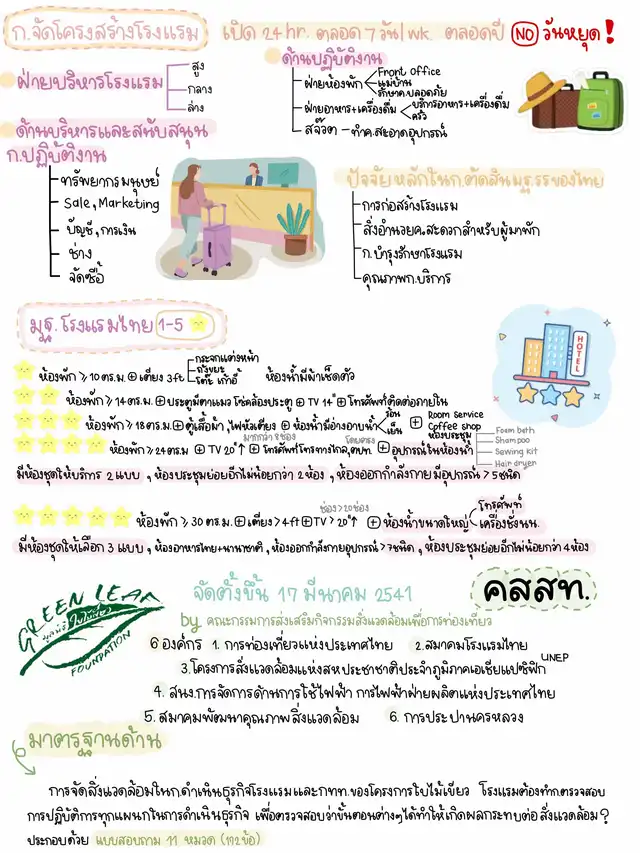 ก.จัดโครงสร้างโรงแรม เปิด 24 hr. ตลอด 7 วัน/wk. ตลอดปี NO วันหยุด!
ฝ่ายบริหารโรงแรม
สูง
กลาง
ล่าง
ด้านปฏิบัติงาน
ฝ่ายห้องพัก
Front office
แม่บ้าน
รักษาค.ปลอดภัย
ฝ่ายอาหาร+เครื่องดื่ม
บริการอาหาร+เครื่องดื่ม
ครัว
สจ๊วต - ทำค.สะอาดอุปกรณ์
ด้านบริหารและสนับสนุน
ก.ปฏิบัติงาน
ทรัพยากรมนุษย์
Sale, Marketing
บัญชี, การเงิน
ช่าง
จัดซื้อ
ปัจจัยหลักในก.ตัดสินมฐ.รร.ของไทย
การก่อสร้างโรงแรม
สิ่งอำนวยค.สะดวกสำหรับผู้มาพัก
ก.บำรุงรักษาโรงแรม
คุณภาพก.บริการ
HOTEL
มฐ.โรงแรมไทย 1-5
ห้องพัก ≥ 10 ตร.ม. + เตียง 3 ft
กระจกแต่งหน้า
ถังขยะ
โต๊ะ เก้าอี้
ห้องน้ำมีผ้าเช็ดตัว
ห้องพัก ≥ 14 ตร.ม. + ประตูมีตาแมว โซ่คล้องประตู + TV 14" + โทรศัพท์ติดต่อภายใน
ห้องพัก ≥ 18 ตร.ม. + ตู้เสื้อผ้า, ไฟหัวเตียง + ห้องน้ำมีอ่างอาบน้ำ
ร้อน
เย็น
+ Room service
Coffee shop
ห้องประชุม
มากกว่า 8 ช่อง
โดยตรง
ห้องพัก ≥ 24 ตร.ม + TV 20"↑ + โทรศัพท์โทรทางไกล,ตปท. + อุปกรณ์ในห้องน้ำ
Foam bath
Shampoo
Sewing kit
Hair dryer
มีห้องชุดให้บริการ 2 แบบ , ห้องประชุมย่อยอีกไม่น้อยกว่า 2 ห้อง , ห้องออกกำลังกาย มีอุปกรณ์ > 5 ชนิด
ช่อง > 20 ช่อง
ห้องพัก ≥ 30 ตร.ม. + เตียง > 4 ft + TV > 20"↑ + ห้องน้ำขนาดใหญ่
โทรศัพท์
เครื่องชั่งนน.
มีห้องชุดให้เลือก 3 แบบ , ห้องอาหารไทย+นานาชาติ , ห้องออกกำลังกายอุปกรณ์ > 7 ชนิด , ห้องประชุมย่อยอีกไม่น้อยกว่า 4 ห้อง
GREEN LEAF
มูลนิธิใบไม้เขียว
FOUNDATION
จัดตั้งขึ้น 17 มีนาคม 2541 คสสท.
by คณะกรรมการส่งเสริมกิจกรรมสิ่งแวดล้อมเพื่อการท่องเที่ยว
6 องค์กร 1. การท่องเที่ยวแห่งประเทศไทย 2. สมาคมโรงแรมไทย
3. โครงการสิ่งแวดล้อมแห่งสหประชาชาติประจำภูมิภาคเอเชียแปซิฟิก UNEP
4. สนง.การจัดการด้านการใช้ไฟฟ้า การไฟฟ้าฝ่ายผลิตแห่งประเทศไทย
5. สมาคมพัฒนาคุณภาพสิ่งแวดล้อม 6. การประปานครหลวง
มาตรฐานด้าน
การจัดสิ่งแวดล้อมในก.ดำเนินธุรกิจโรงแรมและกทท.ของโครงการใบไม้เขียว โรงแรมต้องทำก.ตรวจสอบ
การปฏิบัติการทุกแผนกในการดำเนินธุรกิจ เพื่อตรวจสอบว่าขั้นตอนต่างๆได้ทำให้เกิดผลกระทบต่อสิ่งแวดล้อม?
ประกอบด้วย แบบสอบถาม 11 หมวด (172 ข้อ)